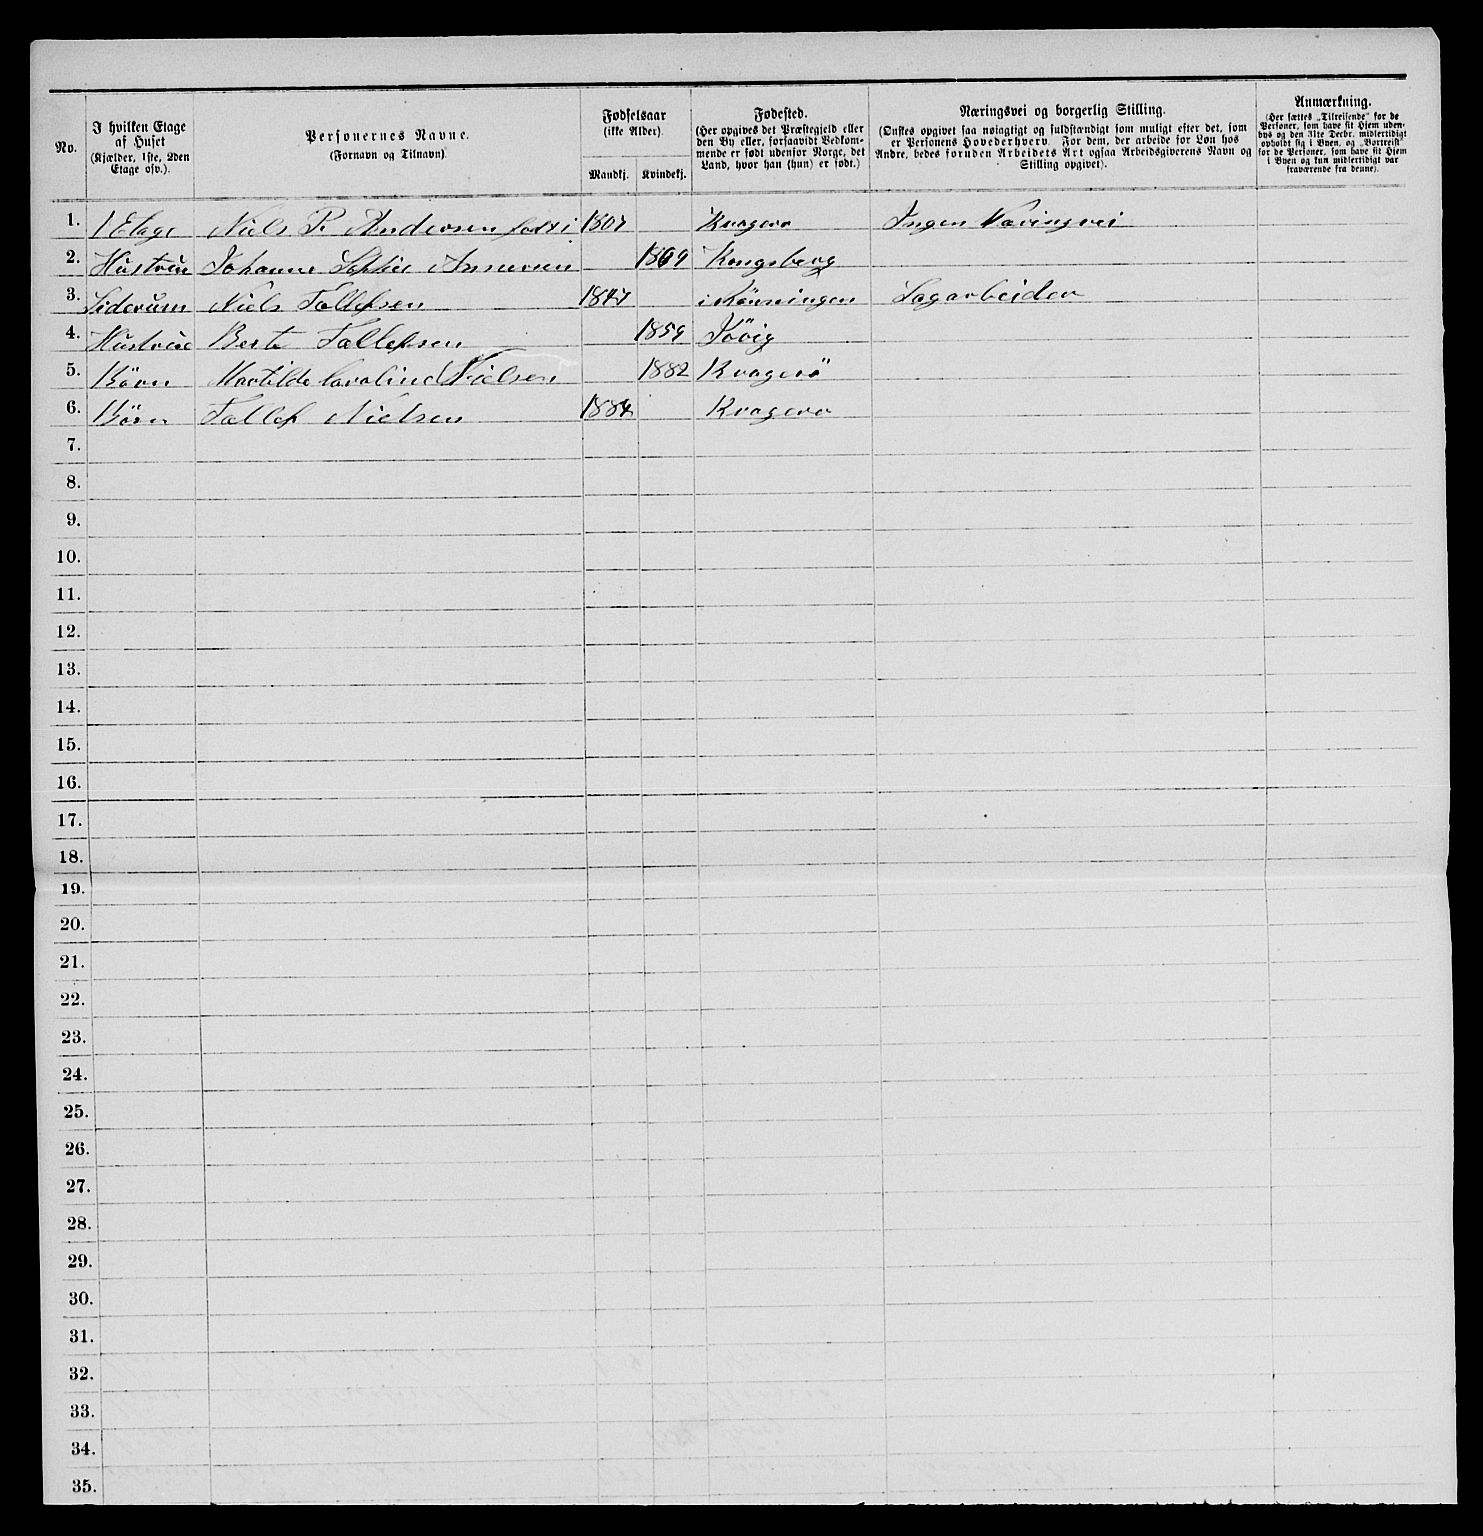 No.
I hvilken Etage
af Huset
(Kjælder, 1ste, 2den
Etage osv.).
Personernes Navne.
(Fornavn og Tilnavn).
Fødselsaar
(ikke Alder).
Mandkj. Kvindekj.
Fødested.
(Her opgives det Præstegjeld eller
den By eller, forsaavidt Vedkom-
mende er født udenfor Norge, det
Land, hvor han (hun) er født.)
Næringsvei og borgerlig Stilling.
(Ønskes opgivet saa nøiagtigt og fuldstændigt som muligt efter det, som
er Personens Hovederhverv. For dem, der arbeide for Løn hos
Andre, bedes foruden Arbeidets Art ogsaa Arbeidsgiverens Navn og
Stilling opgivet).
Anmærkning.
(Her sættes „Tilreisende“ for de
Personer, som have sit Hjem uden-
bys og den 31te Decbr. midlertidigt
opholdt sig i Byen, og „Bortreist“
for de Personer, som have sit Hjem
i Byen og kun midlertidigt var
fraværende fra denne).
1. 1 Etage Niels P. Andersen født i 1807 Kragerø Ingen Næringsvei
2. Hustrue Johanne Sophie 1809 Kongsberg
3. Niels Tollefsen 1847 Sagarbeider
4. Hustrue Berte Tollefsen 1859
5. Børn Martilde Caroline Nielsen 1882 Kragerö
6. Börn Tollef Nielsen 1884 Kragerø
7.
8.
9.
10.
11.
12.
13.
14.
15.
16.
17.
18.
19.
20.
21.
22.
23.
24.
25.
26.
27.
28.
29.
30.
31.
32.
33.
34.
35.